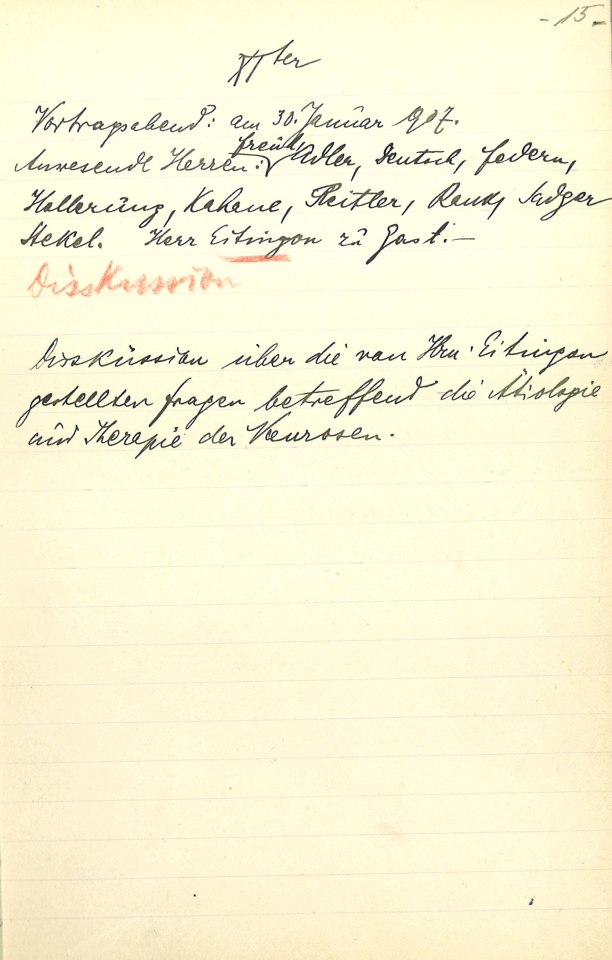 - 15 -
XIter
Vortragsabend: am 30. Januar 907.
Freud,
Anwesend Herren: Adler, Deutsch, Federn,
Hollerung, Kahane, Reitler, Rank, Sadger
Stekel. Herr Eitingon zu Gast.—
Disskussion
Disskussion über die von Hrn. Eitingon
gestellten Fragen betreffend die Ätiologie
und Therapie der Neurosen.